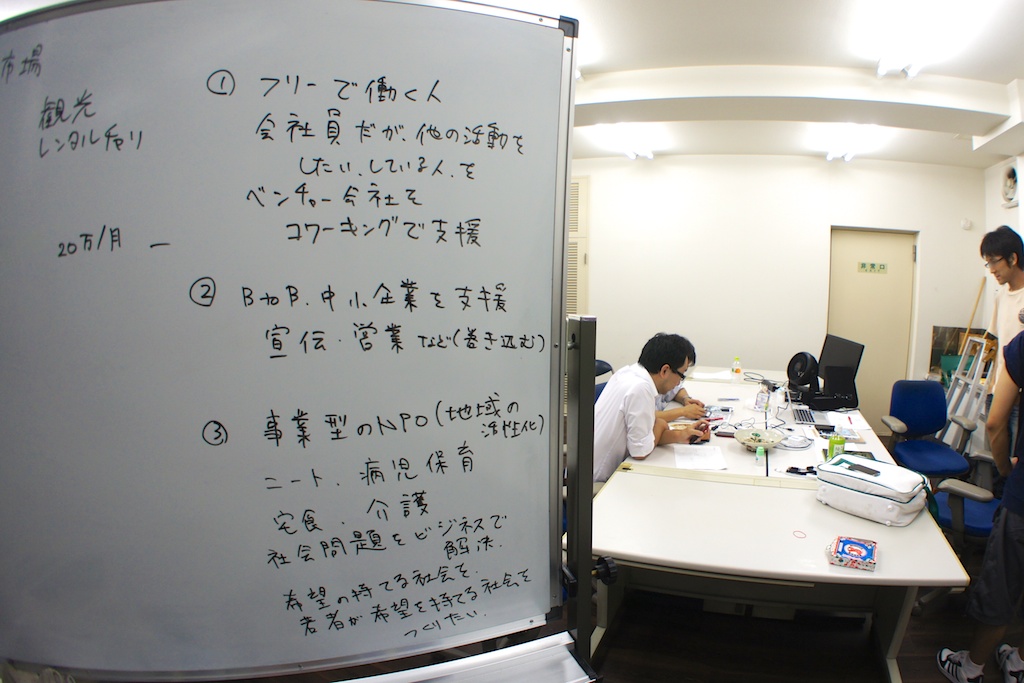 市場
観光
レンタルチャリ
20万/月 ー
① フリーで働く人
会社員だが、他の活動を
したい、している人、を
ベンチャー会社を
コワーキングで支援
② BtoB、中小企業を支援
宣伝・営業など(巻き込む)
③ 事業型のNPO(地域の
活性化)
ニート、病児保育
宅食、介護
社会問題をビジネスで
解決、
希望の持てる社会を、
若者が希望を持てる社会を
つくりたい、
非常口